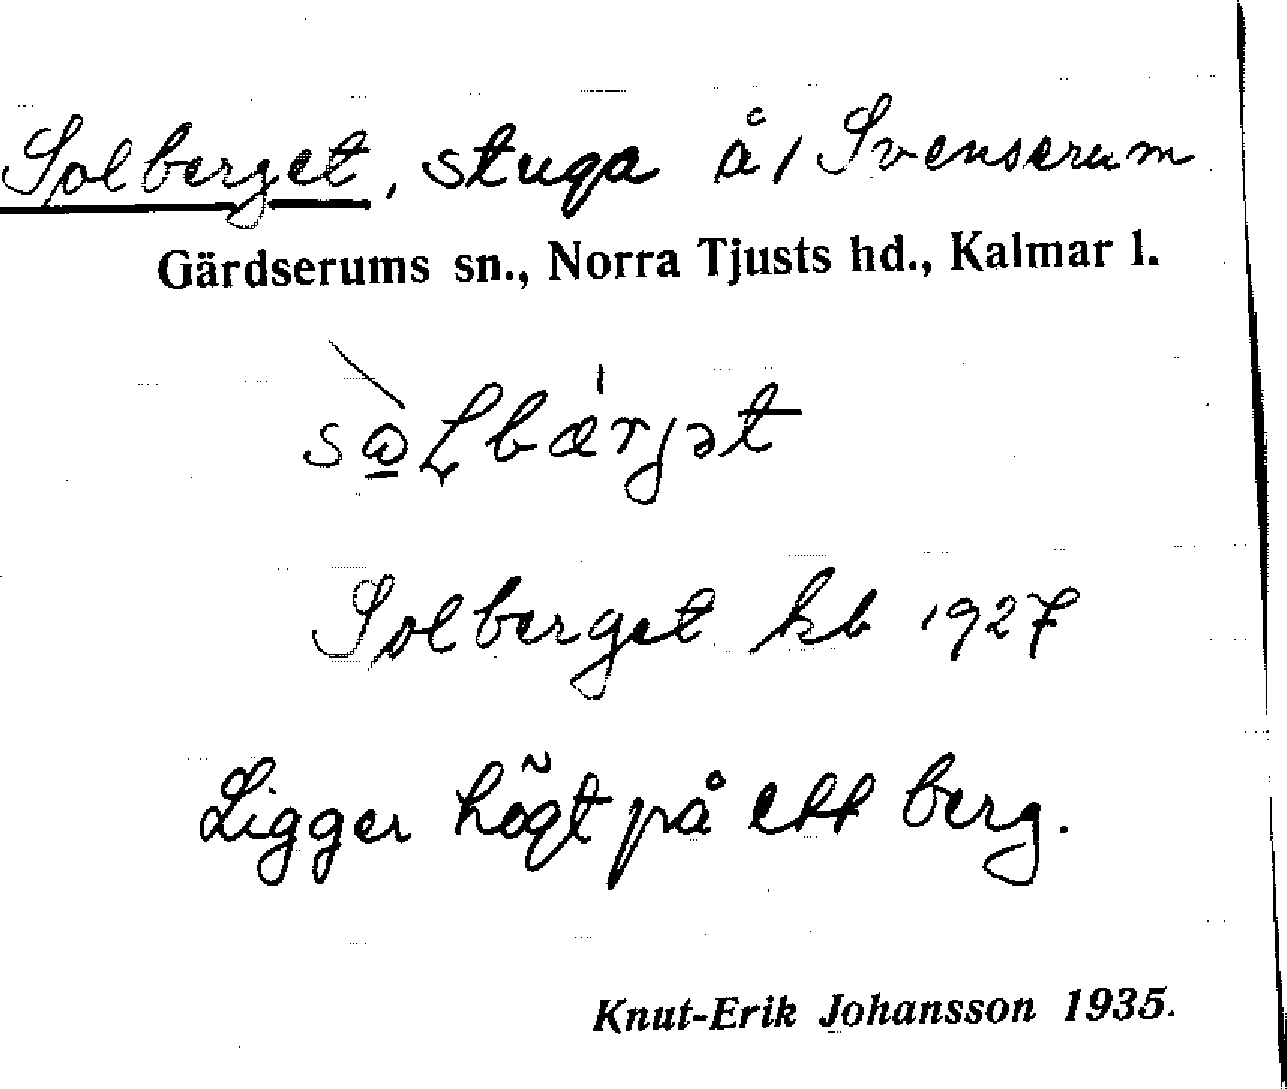 Solberget, stuga å/ Svenserum
Gärdserums sn., Norra Tjusts hd., Kalmar l.
Solberget kb 1927
Ligger högt på ett berg.
Knut-Erik Johansson 1935.